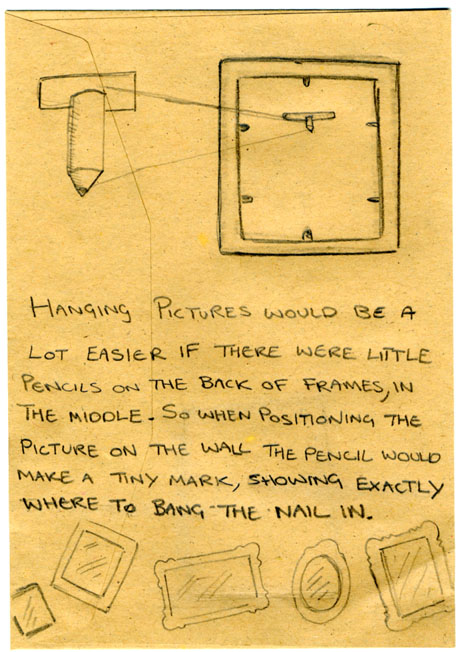 HANGING PICTURES WOULD BE A
LOT EASIER IF THERE WERE LITTLE
PENCILS ON THE BACK OF FRAMES, IN
THE MIDDLE. SO WHEN POSITIONING THE
PICTURE ON THE WALL THE PENCIL WOULD
MAKE A TINY MARK, SHOWING EXACTLY
WHERE TO BANG THE NAIL IN.